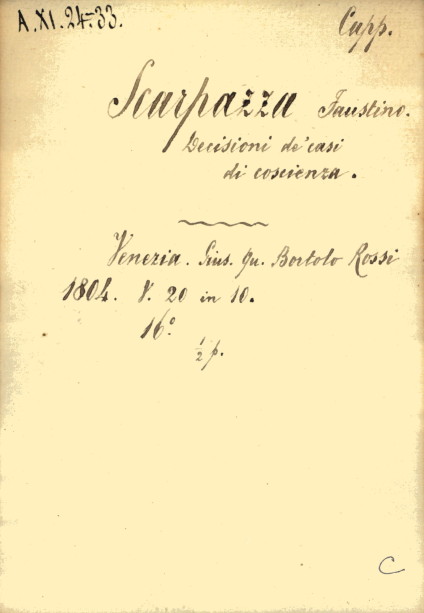 A.XI.24-33.
Capp.
Scarpazza Faustino.
Decisioni de' casi
di coscienza.
Venezia. Gius. qu. Bortolo Rossi
1804. V. 20 in 10.
16°
½ p.
C